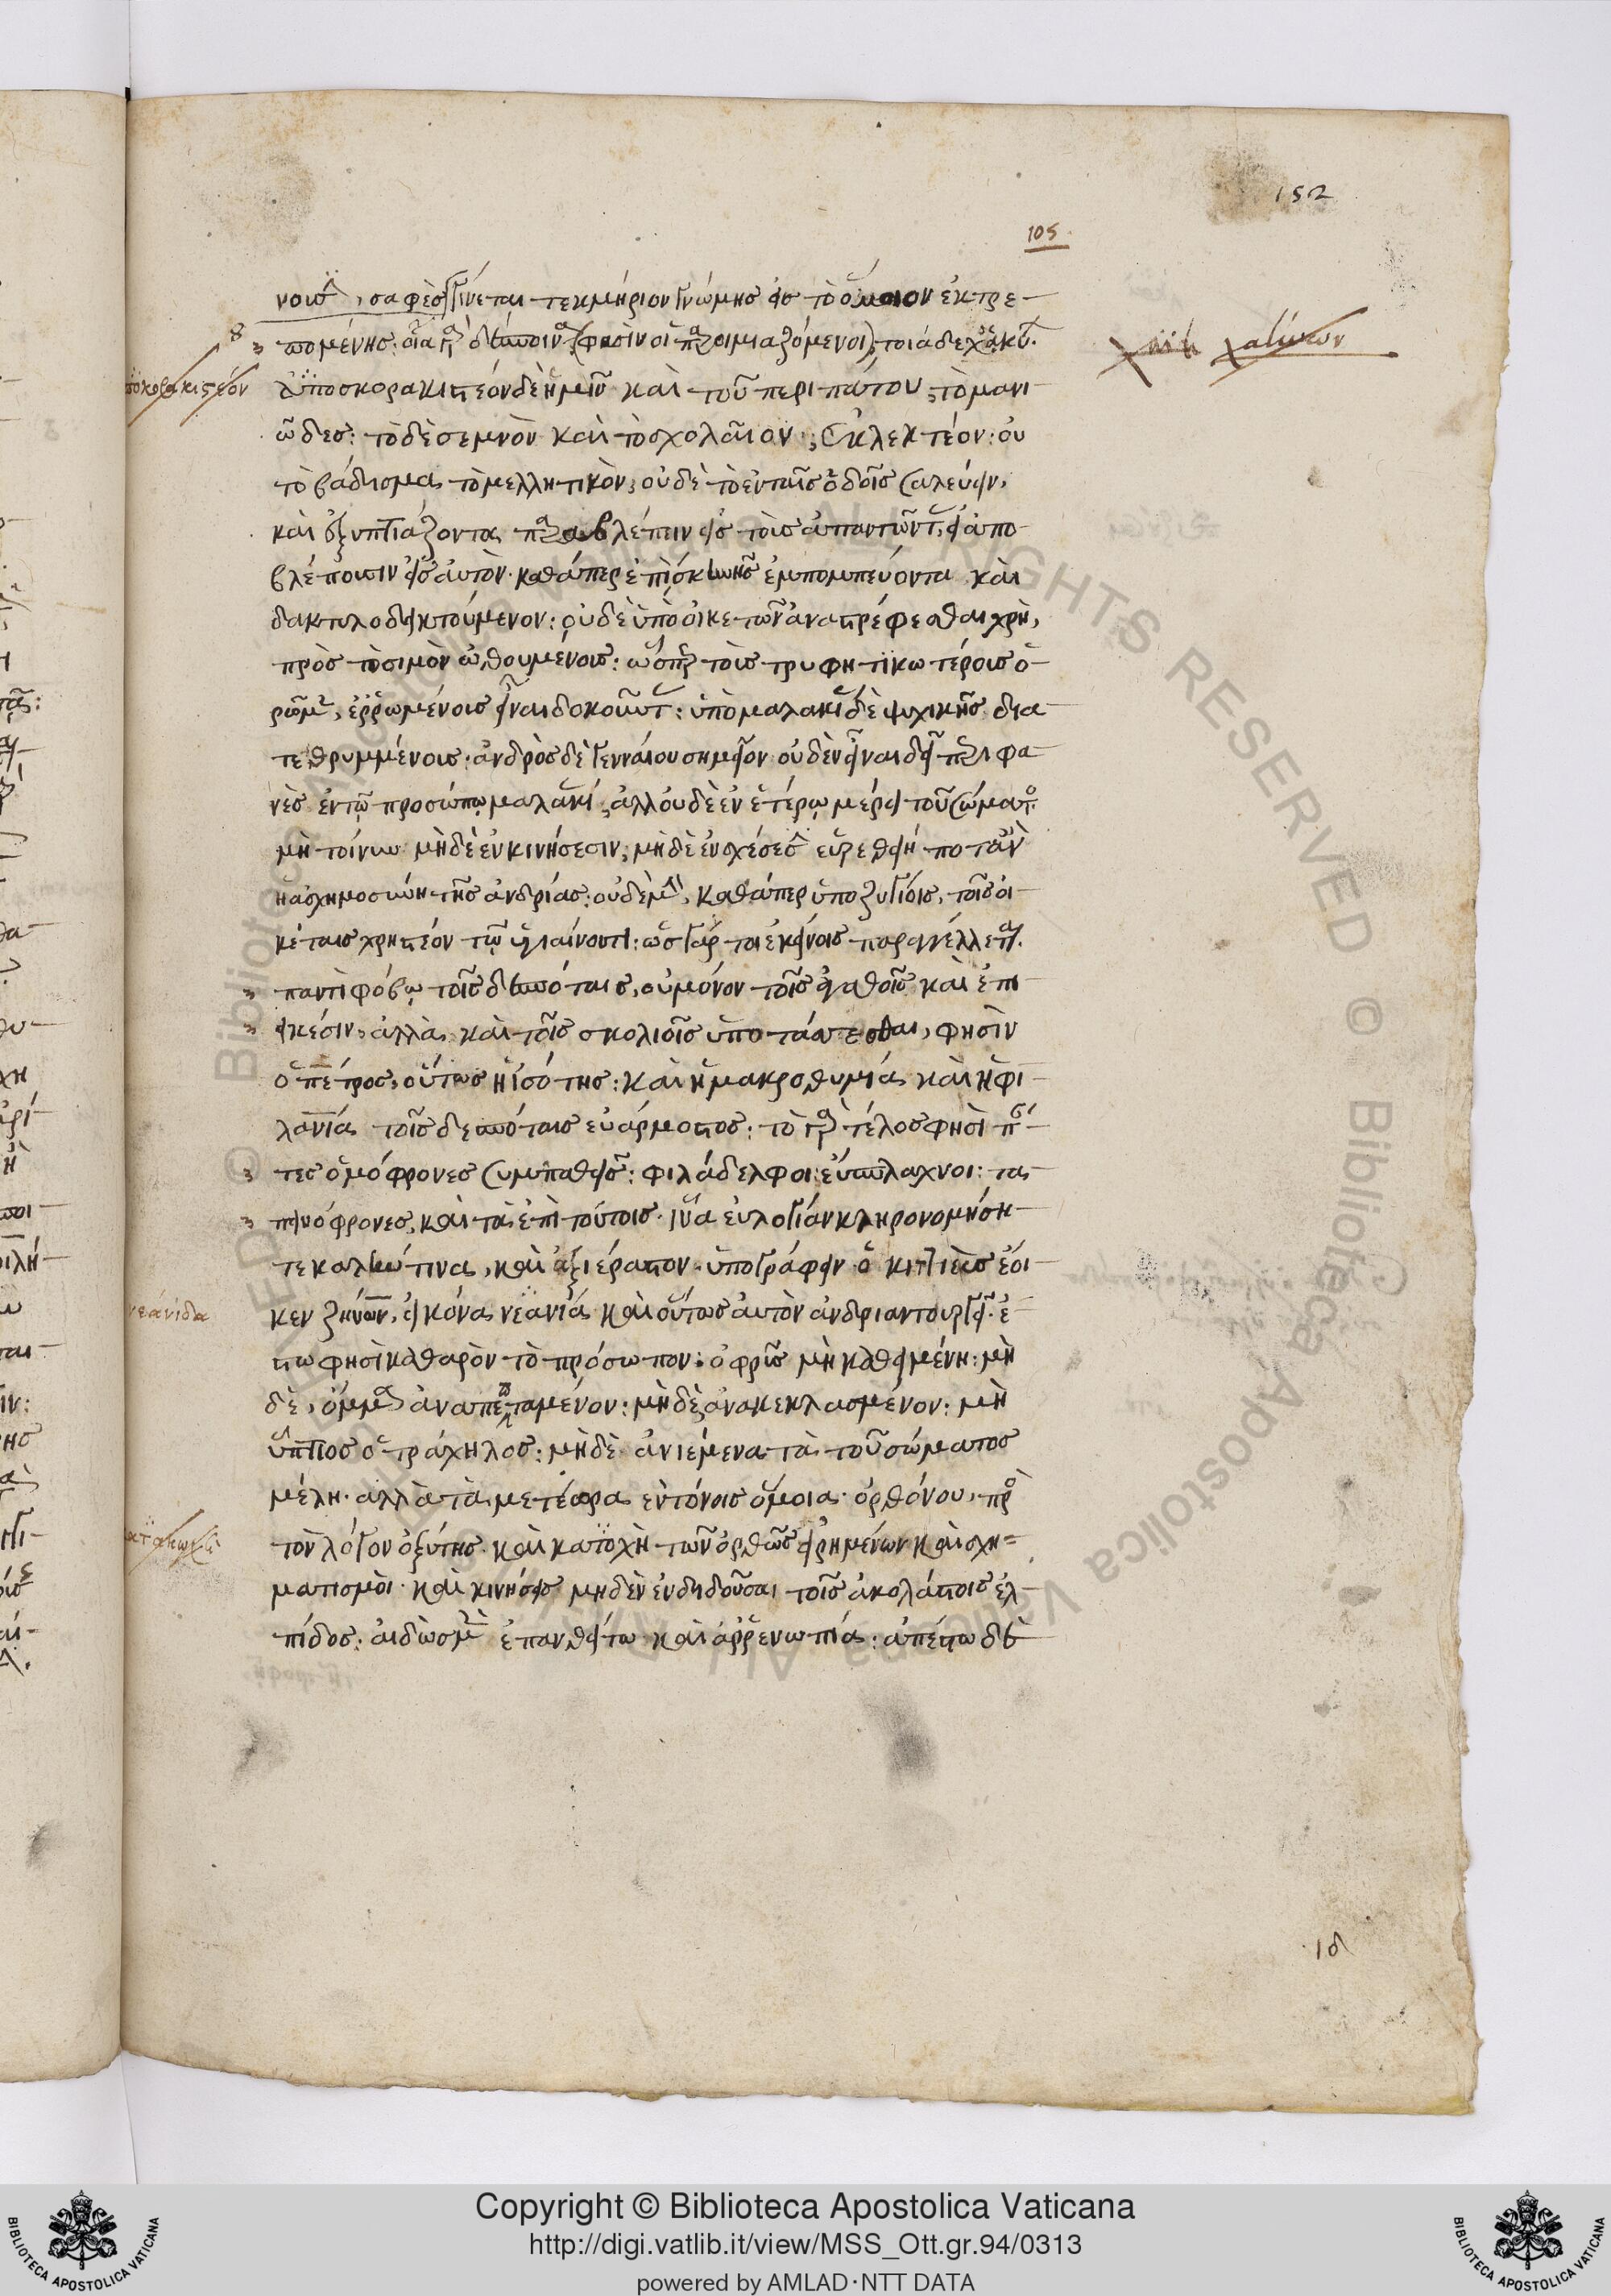 152
105
νοις, σαφὲς γίνεται τεκμήριον γνώμης εἰς τὸ ὅμοιον ἐκτρε-
πομένης: οἵα γὰρ δέσποινα (φασὶν οἱ παροιμιαζόμενοι), τοιάδε χἀ κύ.
ὑποσκορακιστέον
χαλίκων
ἀποσκορακιστέον δὲ ἡμῖν καὶ τοῦ περιπάτου, τὸ μανι-
ῶδες: τὸ δὲ σεμνὸν καὶ τὸ σχολαῖον, ἐκλεκτέον: οὐ
τὸ βάδισμα τὸ μελλητικὸν, οὐδὲ τὸ ἐν ταῖς ὁδοῖς σαλεύειν,
καὶ ἐξυπτιάζοντα παραβλέπειν εἰς τοὺς ἀπαντῶντ, εἰ ἀπο-
βλέπουσιν εἰς αὐτὸν καθάπερ ἐπὶ σκηνῆς ἐμπομπεύοντα καὶ
δακτυλοδεικτούμενον: οὐδὲ ὑπὸ οἰκετῶν ἀνατρέφεσθαι χρὴ,
πρὸς τὸ σιμὸν ὠθουμένοις: ὥσπερ τοὺς τρυφητικωτέρους ὁ-
ρῶμεν, ἐρρωμένους εἶναι δοκοῦντ: ὑπὸ μαλακίας δὲ ψυχικῆς δια-
τεθρυμμένοις: ἀνδρὸς δὲ γενναίου σημεῖον οὐδὲν εἶναι δεῖ περιφα-
νὲς ἐν τῷ προσώπῳ μαλακί, ἀλλ οὐδὲ ἐν ἑτέρῳ μέρει τοῦ σώματο
μὴ τοίνυν μηδὲ ἐν κινήσεσιν, μηδὲ ἐν σχέσεσι εὑρεθείη ποτὰν
ἡ ἀσχημοσύνη τῆς ἀνδρίας: οὐδὲ μὴν, καθάπερ ὑποζυγίοις, τοῖς οἰ-
κέταις χρηστέον τῷ ὑγιαίνοντι: ὡς γάρ τοι ἐκείνοις παραγγέλλεται
παντὶ φόβῳ τοῖς δεσπόταις, οὐ μόνον τοῖς ἀγαθοῖς καὶ ἐπι
εικέσιν, ἀλλὰ καὶ τοῖς σκολιοῖς ὑποτάσσεσθαι, φησὶν
ὁ πέτρος, οὕτως ἡ ἰσότης: καὶ ἡ μακροθυμία καὶ ἡ φι-
λανία τοῖς δεσπόταις εὐάρμοστος: τὸ γὰρ τέλος φησὶ πάν-
τες ὁμόφρονες συμπαθεῖς: φιλάδελφοι: εὔσπλαχνοι: τα
πεινόφρονες, καὶ τὰ ἐπὶ τούτοις. ἵνα εὐλογίαν κληρονομήση-
τε καλήν τινα, καὶ ἀξιέραστον ὑπογράφειν ὁ κιττιεὺς ἔοι-
νεάνιδα
κεν ζήνων, εἰκόνα νεανία καὶ οὕτως αὐτὸν ἀνδριαντουργεῖ. ἔ-
στω φησὶ καθαρὸν τὸ πρόσωπον: ὀφρῦς μὴ καθειμένη: μη
δὲ, ὄμμα ἀναπεπταμένον: μηδὲ ἀνακεκλασμένον: μὴ
ὕπτιος ὁ τράχηλος: μηδὲ ἀνιέμενα τὰ τοῦ σώματος
μέλη. ἀλλὰ τὰ μετέωρα ἐντόνοις ὅμοια. ὀρθόνου, πρὸ
τὸν λόγον ὀξύτης. καὶ κατοχὴ τῶν ὀρθῶς εἰρημένων καὶ σχη=
ματισμοὶ. καὶ κινήσεις μηδὲν ἐνδιδοῦσαι τοῖς ἀκολάστοις ἐλ-
πίδος: αἰδὼς μὲν ἐπανθείτω καὶ ἀρρενωπία: ἀπέστω δὲ
Copyright © Biblioteca Apostolica Vaticana
http://digi.vatlib.it/view/MSS_Ott.gr.94/0313
powered by AMLAD·NTT DATA